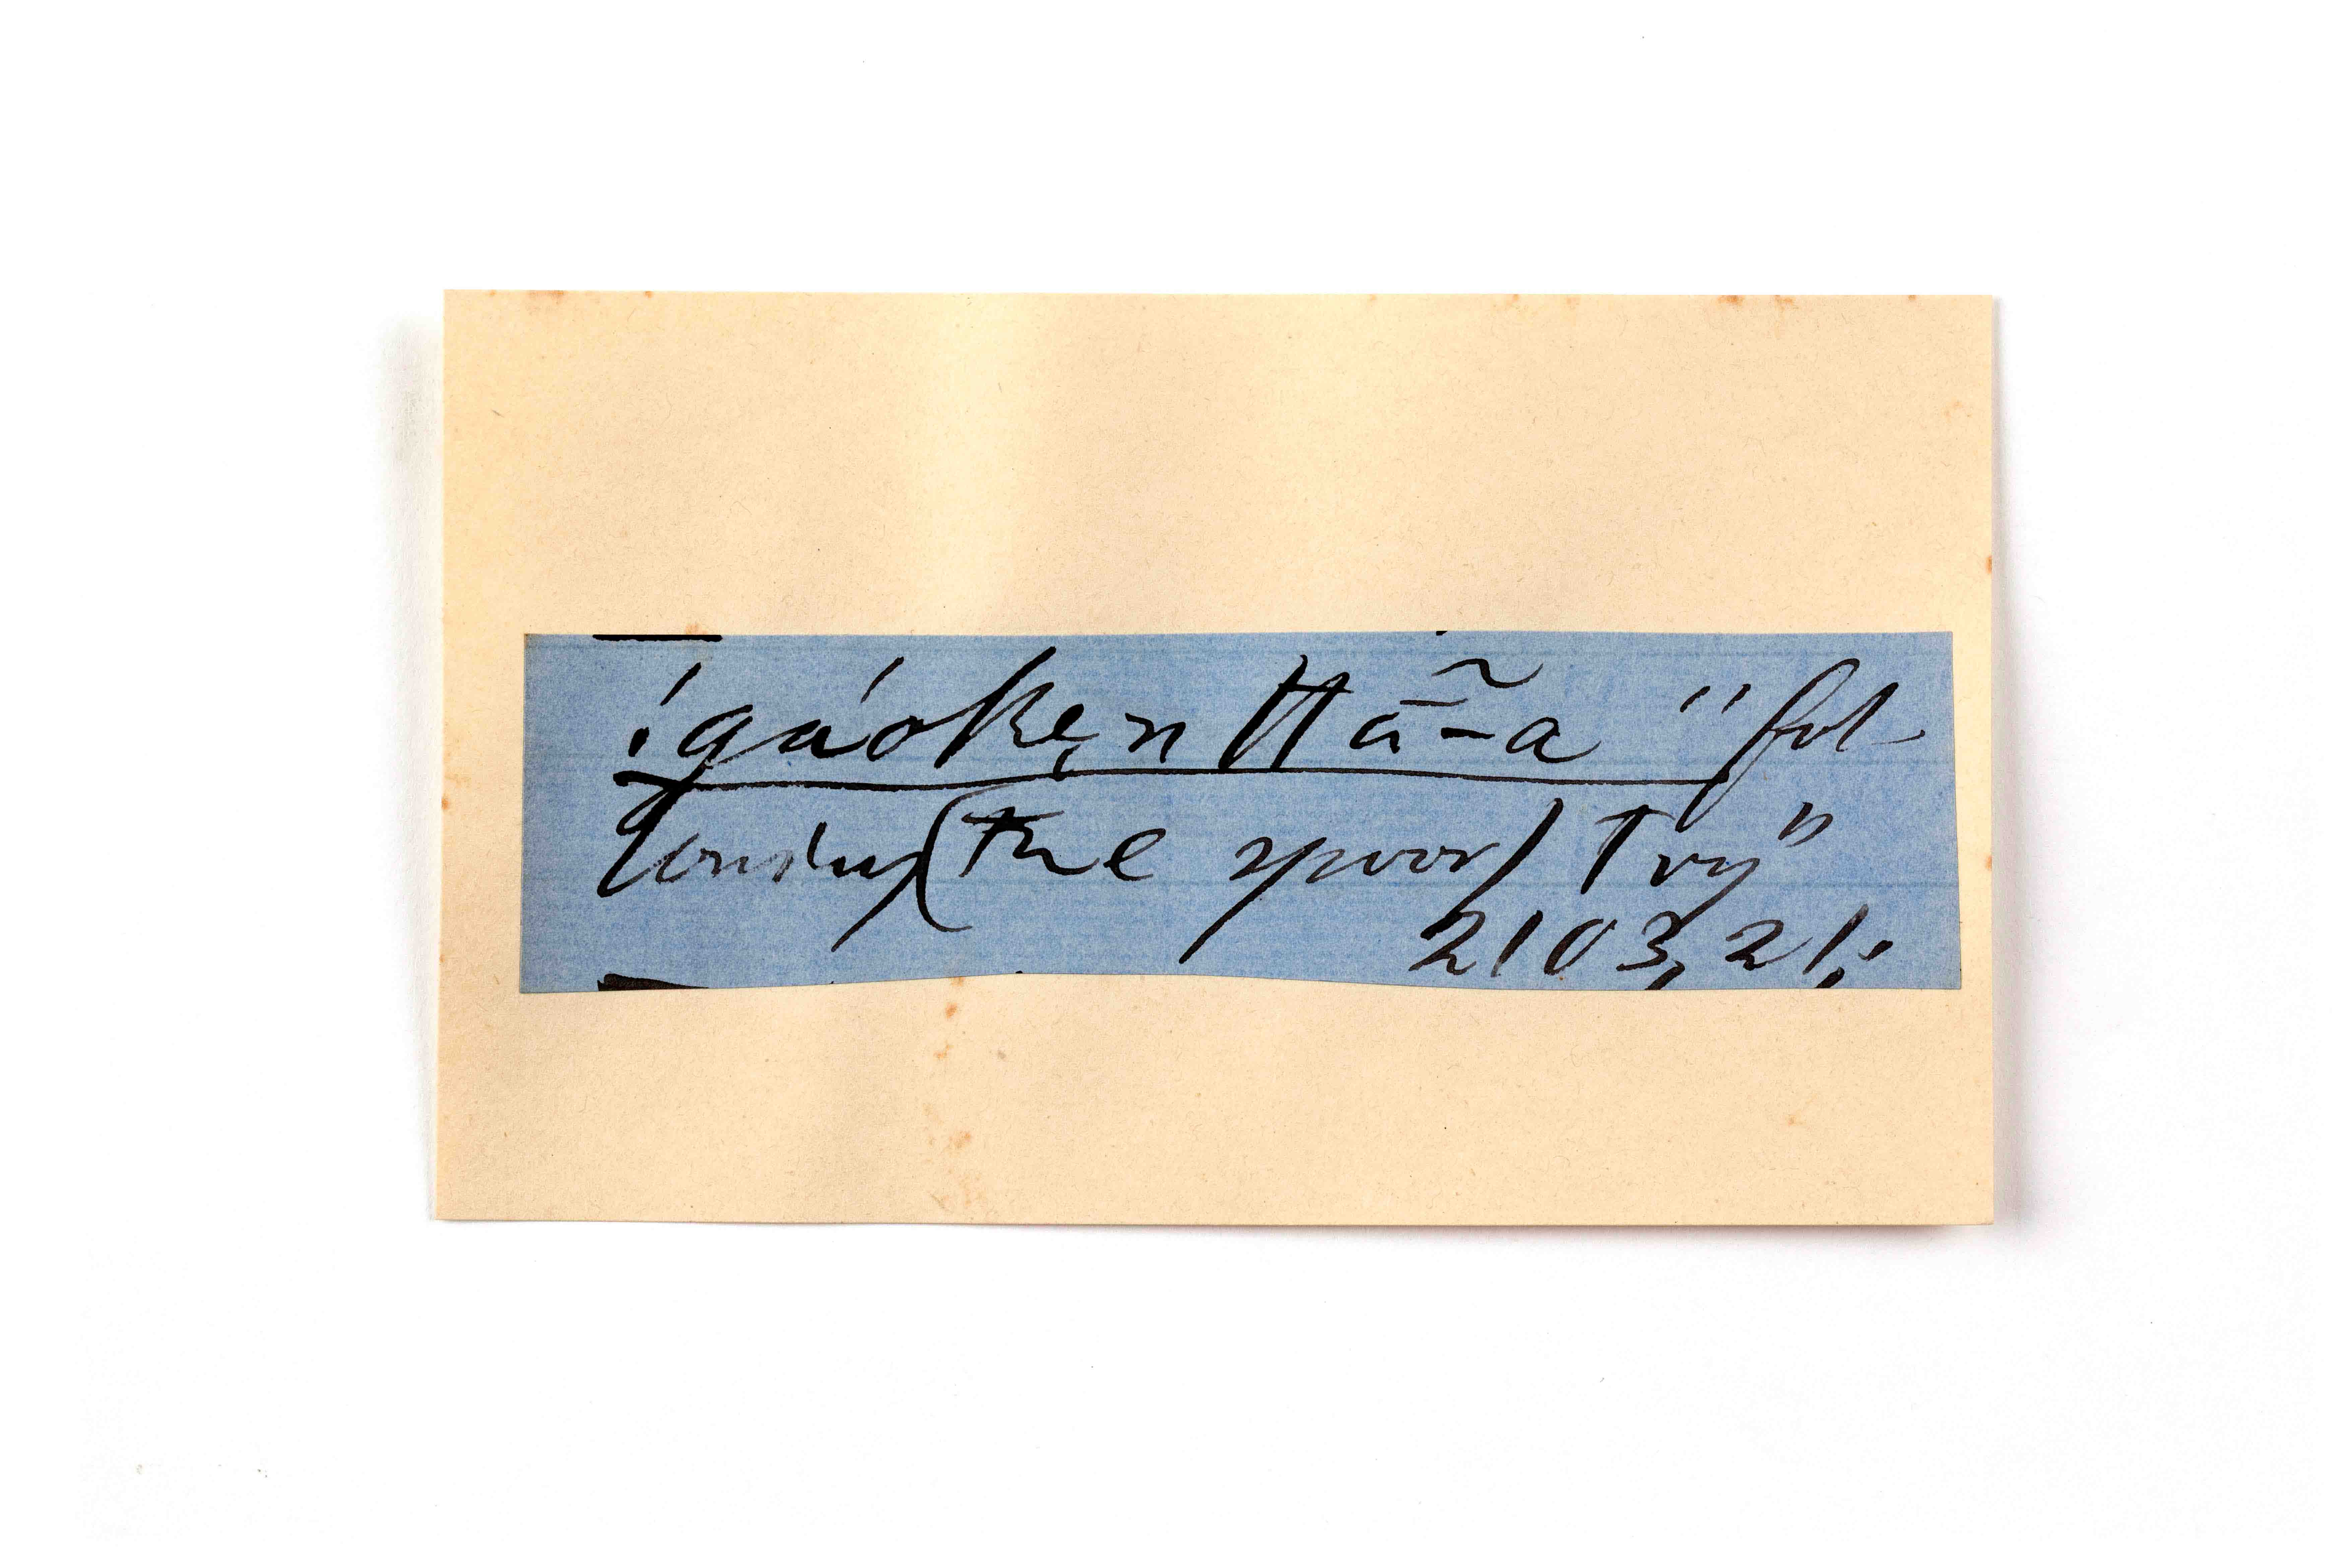 !gáokęn ttā̃-a "fol-
lowing (the spoor) try"
2103, 21;